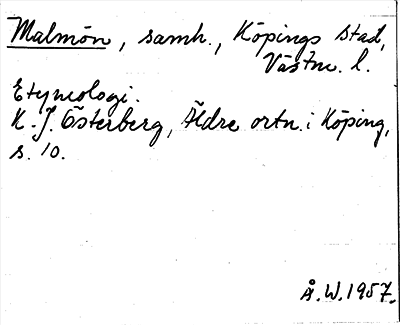 Malmön, samh., Köpings stad,
Västm. l.
Etymologi.
K.-J. Österberg, Äldre ortn. i Köping,
s. 10.
Å.W. 1957.